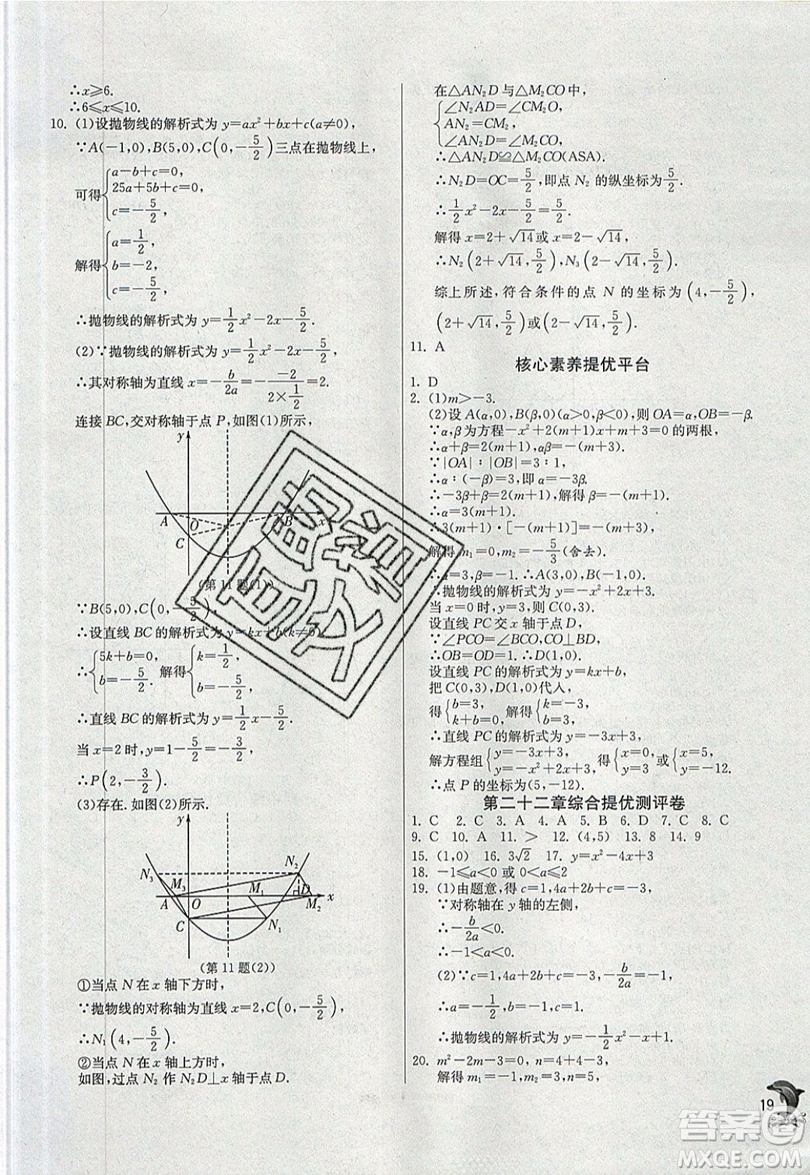 ∴x≥6.
∴6≤x≤10.
10. (1)设抛物线的解析式为 y=ax²+bx+c(a≠0),
∵A(-1,0),B(5,0),C(0,-5/2)三点在抛物线上,
可得{a-b+c=0, 25a+5b+c=0, c=-5/2.
解得{a=1/2, b=-2, c=-5/2.
∴抛物线的解析式为 y=1/2x²-2x-5/2.
(2)∵抛物线的解析式为 y=1/2x²-2x-5/2.
∴其对称轴为直线 x=-b/2a=-(-2)/(2×1/2)=2.
连接 BC,交对称轴于点 P,如图(1)所示,
y
A O B x
C
(第 11 题(1))
∵B(5,0),C(0,-5/2),
∴设直线 BC 的解析式为 y=kx+b(k≠0)
∴{5k+b=0, b=-5/2. 解得{k=1/2, b=-5/2.
∴直线 BC 的解析式为 y=1/2x-5/2.
当 x=2 时,y=1-5/2=-3/2,
∴P(2,-3/2).
(3)存在. 如图(2)所示.
y
N₃ N₂
M₃ M₁ D
A O M₂ x
C N₁
(第 11 题(2))
①当点 N 在 x 轴下方时,
∵抛物线的对称轴为直线 x=2,C(0,-5/2),
∴N₁(4,-5/2).
②当点 N 在 x 轴上方时,
如图,过点 N₂ 作 N₂D⊥x 轴于点 D.
在△AN₂D 与△M₂CO 中,
{∠N₂AD=∠CM₂O, AN₂=CM₂, ∠AN₂D=∠M₂CO,
∴△AN₂D≌△M₂CO(ASA).
∴N₂D=OC=5/2,即点 N₂ 的纵坐标为5/2.
∴1/2x²-2x-5/2=5/2.
解得 x=2+√14或 x=2-√14,
∴N₂(2+√14,5/2),N₃(2-√14,5/2).
综上所述,符合条件的点 N 的坐标为(4,-5/2),
(2+√14,5/2)或(2-√14,5/2).
11. A
核心素养提优平台
1. D
2. (1)m>-3.
(2)设 A(α,0),B(β,0)(α>0,β<0),则 OA=α,OB=-β.
∵α,β为方程-x²+2(m+1)x+m+3=0 的两根,
∴α+β=2(m+1),αβ=-(m+3).
∵|OA|∶|OB|=3∶1,
∴α∶(-β)=3∶1,即 α=-3β.
∴-3β+β=2(m+1),解得 β=-(m+1).
∴α=3(m+1).
∴3(m+1)·[-(m+1)]=-(m+3),
解得 m₁=0,m₂=-5/3(舍去).
∴α=3,β=-1. ∴A(3,0),B(-1,0).
∴抛物线的解析式为 y=-x²+2x+3.
当 x=0 时,y=3,则 C(0,3).
设直线 PC 交 x 轴于点 D.
∵∠PCO=∠BCO,CO⊥BD,
∴OB=OD. ∴D(1,0).
设直线 PC 的解析式为 y=kx+b,
把 C(0,3),D(1,0)代入,
得{b=3, k+b=0. 解得{k=-3, b=3.
∴直线 PC 的解析式为 y=-3x+3,
解方程组{y=-3x+3, y=-x²+2x+3 得{x=5, y=-12.
∴点 P 的坐标为(5,-12).
第二十二章综合提优测评卷
1. C 2. C 3. C 4. A 5. A 6. B 7. C 8. D
9. C 10. A 11. > 12. (4,5) 13. 8 14. 9
15. (1,0) 16. 3√2 17. y=x²-4x+3
18. -1≤a<0 或 0<a≤2
19. (1)由题意,得 c=1,4a+2b+c=-1,
∵对称轴在 y 轴的左侧,
∴-b/2a<0.
∴-1<a<0.
(2)∵c=1,4a+2b+c=-1,
∴a=-1/2,b=0.
∴抛物线的解析式为 y=-1/2x²-x+1.
20. m²-2m-3=0,n=4+2m-m²,
解得 m₁=-1,m₂=3,n=5,
19
直购
文摇
答案
MXQE.COM